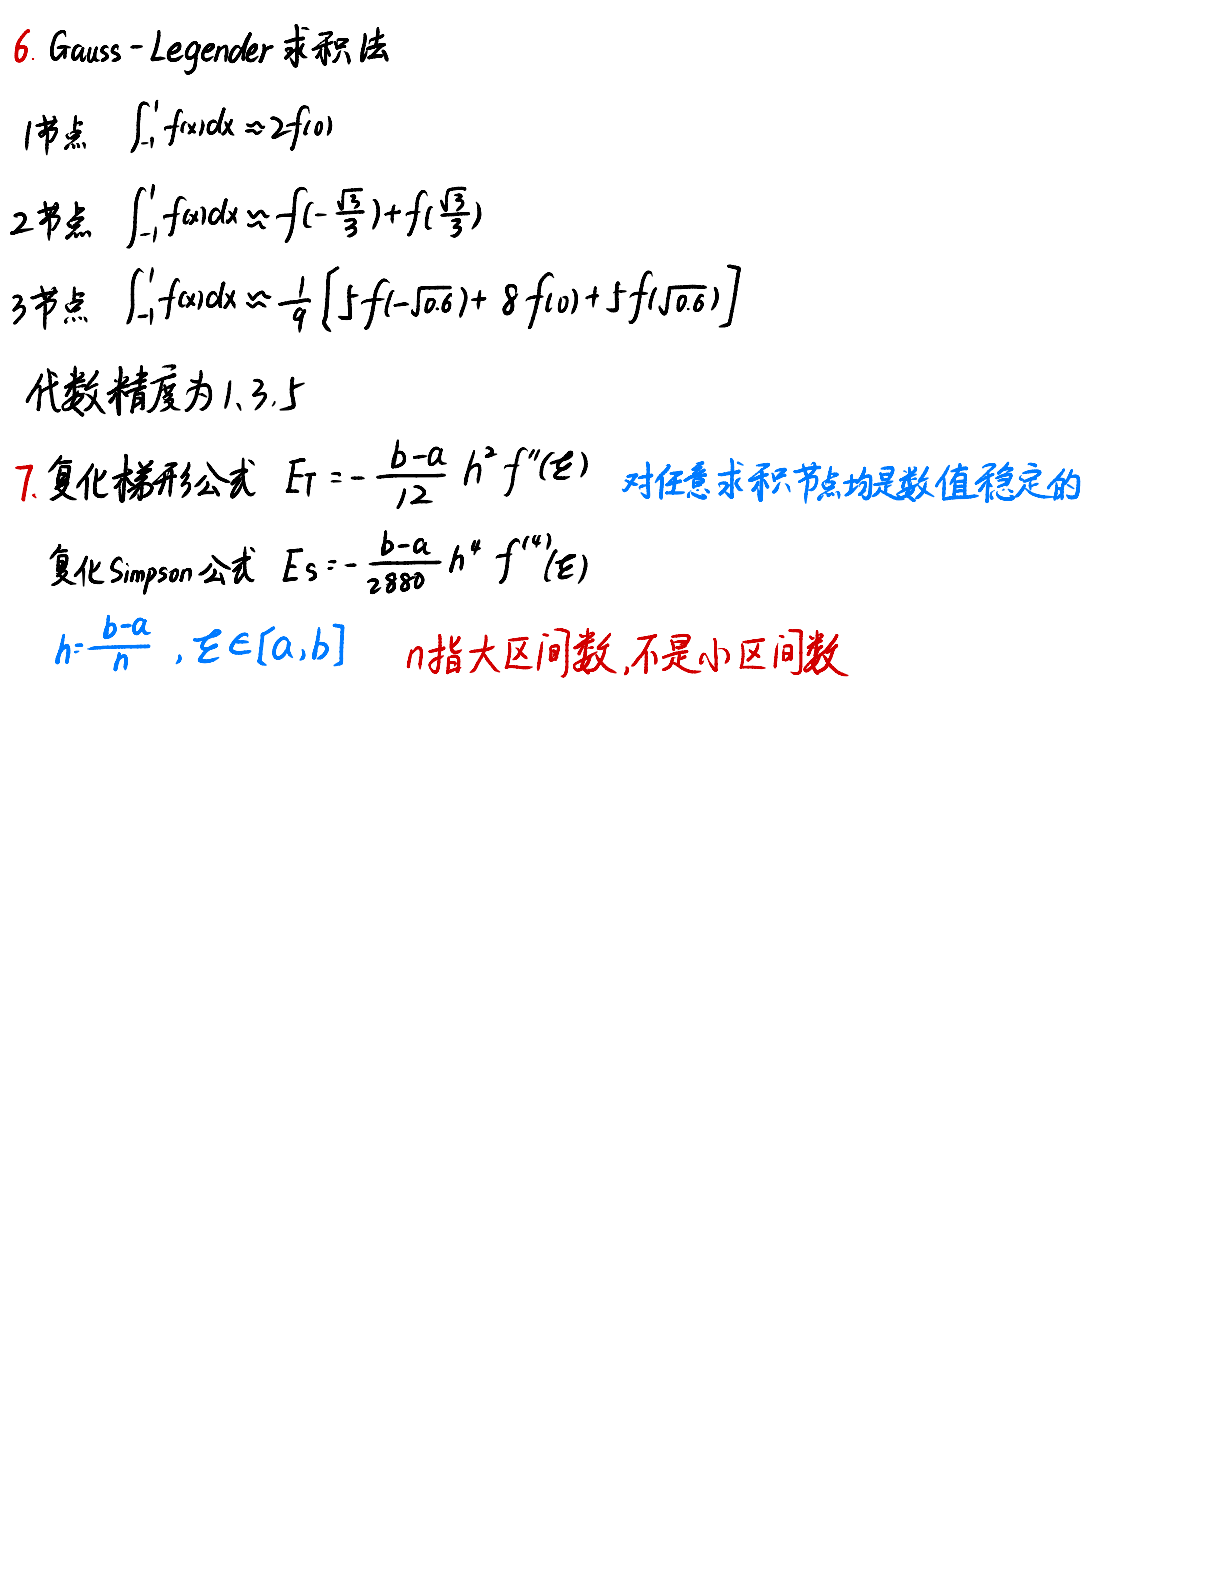 6. Gauss-Legender 求积法
1节点 ∫₋₁¹ f(x)dx ≈ 2f(0)
2节点 ∫₋₁¹ f(x)dx ≈ f(-√3/3) + f(√3/3)
3节点 ∫₋₁¹ f(x)dx ≈ 1/9 [5f(-√0.6) + 8f(0) + 5f(√0.6)]
代数精度为1、3、5
7、复化梯形公式 E_T = - (b-a)/12 h² f''(ξ) 对任意求积节点均是数值稳定的
复化Simpson公式 E_S = - (b-a)/2880 h⁴ f⁽⁴⁾(ξ)
h = (b-a)/n , ξ∈[a,b] n指大区间数,不是小区间数